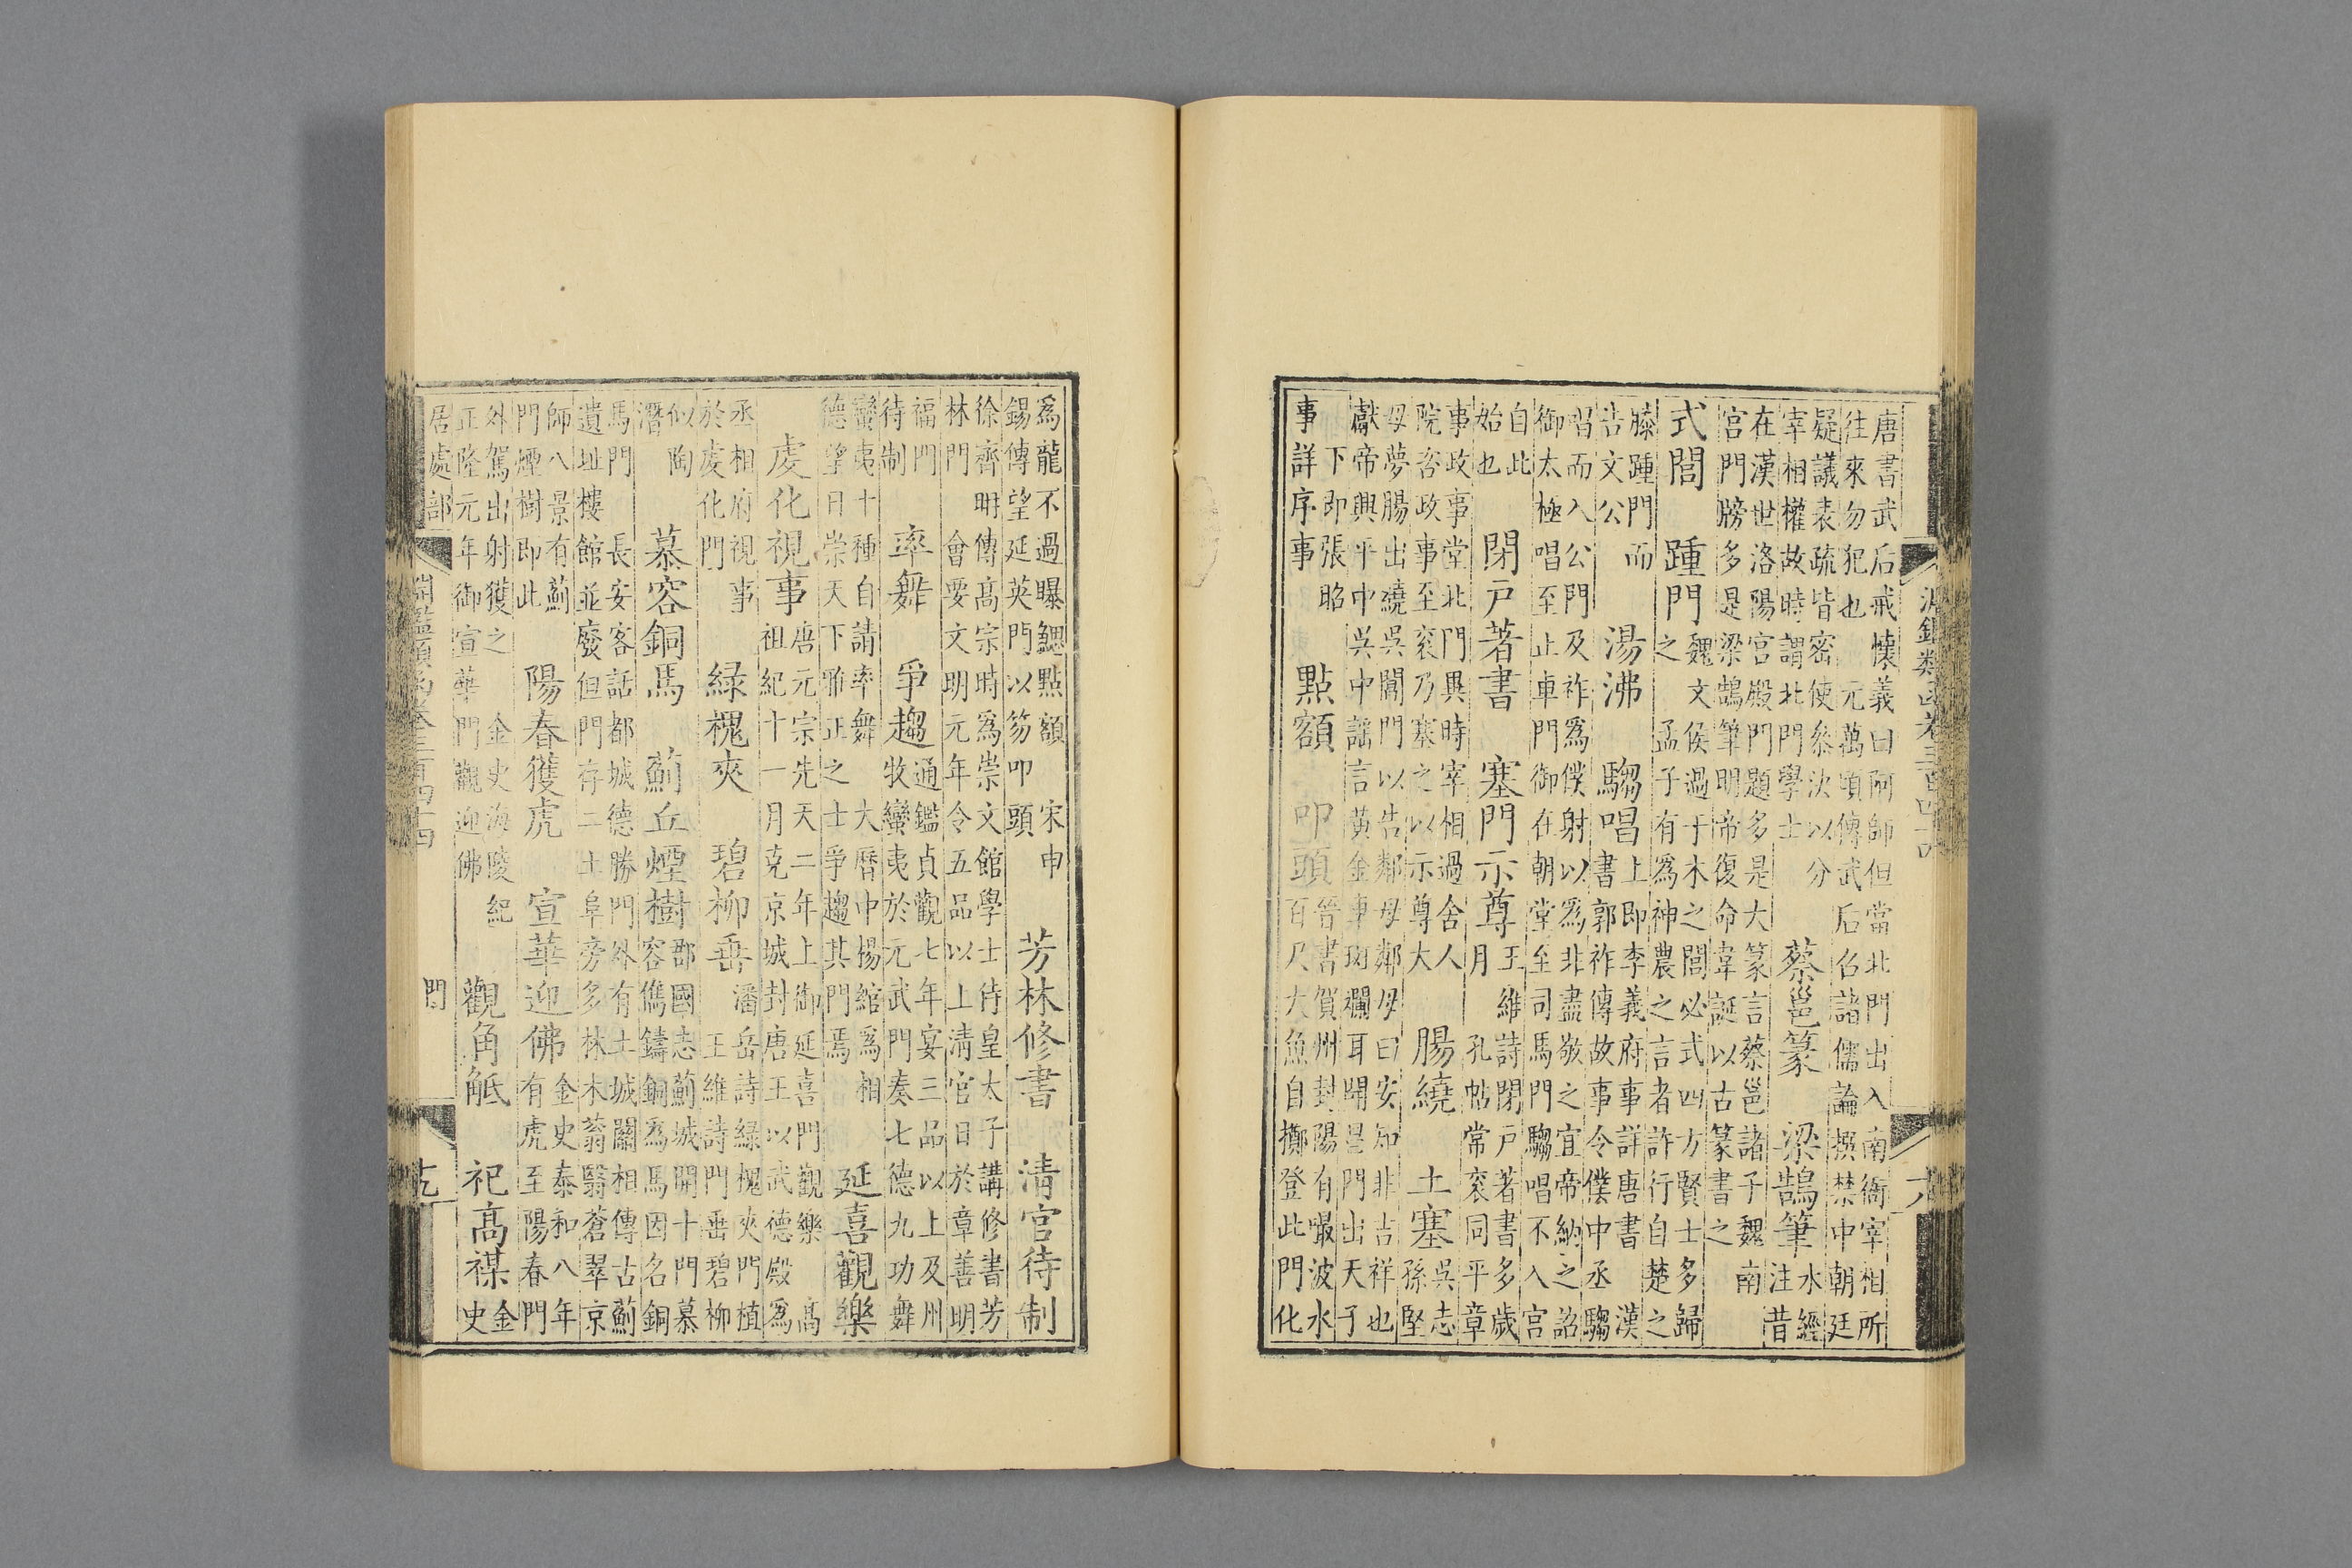 淵鑑類函卷三百四十四 六
唐書武后戒懷義曰阿師但當北門出入南衙宰相所
往來勿犯也 元萬頃傳武后召諸儒論撰禁中朝廷
疑議表疏皆密使參決以分
宰相權故時謂北門學士
蔡邕篆 梁鵠筆
水經
注昔
在漢世洛陽宮殿門題多是大篆言蔡邕諸子魏南
宮門牓多是梁鵠筆明帝復命韋誕以古篆書之
式閭 踵門
魏文侯過干木之閭必式四方賢士多歸
之 孟子有爲神農之言者許行自楚之
滕踵門而
告文公
湯沸 騶唱
上即李義府事詳唐書 漢
書郭祚傳故事令僕中丞騶
唱而入公門及祚爲僕射以爲非盡敬之宜帝納之詔
御太極唱至止車門御在朝堂至司馬門騶唱不入宮
自此
始也
閉戸著書 塞門示尊
王維詩閉戸著書多歲
月 孔帖常衮同平章
事政事堂北門異時宰相過舍人
院咨政事至衮乃塞之以示尊大
腸繞 土塞
吳志
孫堅
母夢腸出繞吳閶門以告鄰母鄰母曰安知非吉祥也
獻帝興平中吳中謠言黃金車斑斕耳開昌門出天子
下即張昭
事詳序事
點額 叩頭
晉書賀州封陽有嘬波水
百尺大魚自擲登此門化
爲龍不過曝鰓點額 宋申
錫傳望延英門以笏叩頭
芳林修書 清宮待制
徐齊聃傳高宗時爲崇文館學士侍皇太子講修書芳
林門 會要文明元年令五品以上清官日於章善明
福門
待制
率舞 爭趨
通鑑貞觀七年宴三品以上及州
牧蠻夷於元武門奏七德九功舞
蠻夷十種自請率舞 大曆中楊綰爲相
德望日崇天下雅正之士爭趨其門焉
延喜觀樂
虔化視事
唐元宗先天二年上御延喜門觀樂 高
祖紀十一月克京城封唐王以武德殿爲
丞相府視事
於虔化門
綠槐夾 碧柳垂
潘岳詩綠槐夾門植
王維詩門垂碧柳
似陶
潛
慕容銅馬 薊丘煙樹
郡國志薊城開十門慕
容儁鑄銅爲馬因名銅
馬門 長安客話都城德勝門外有土城關相傳古薊
遺址樓館並廢但門存二土阜旁多林木蓊翳蒼翠京
師八景有薊
門煙樹即此
陽春獲虎 宣華迎佛
金史泰和八年
有虎至陽春門
外駕出射獲之 金史海陵紀
正隆元年御宣華門觀迎佛
觀角觝 祀高禖
金
史
居處部 門
淵鑑類函卷三百四十四